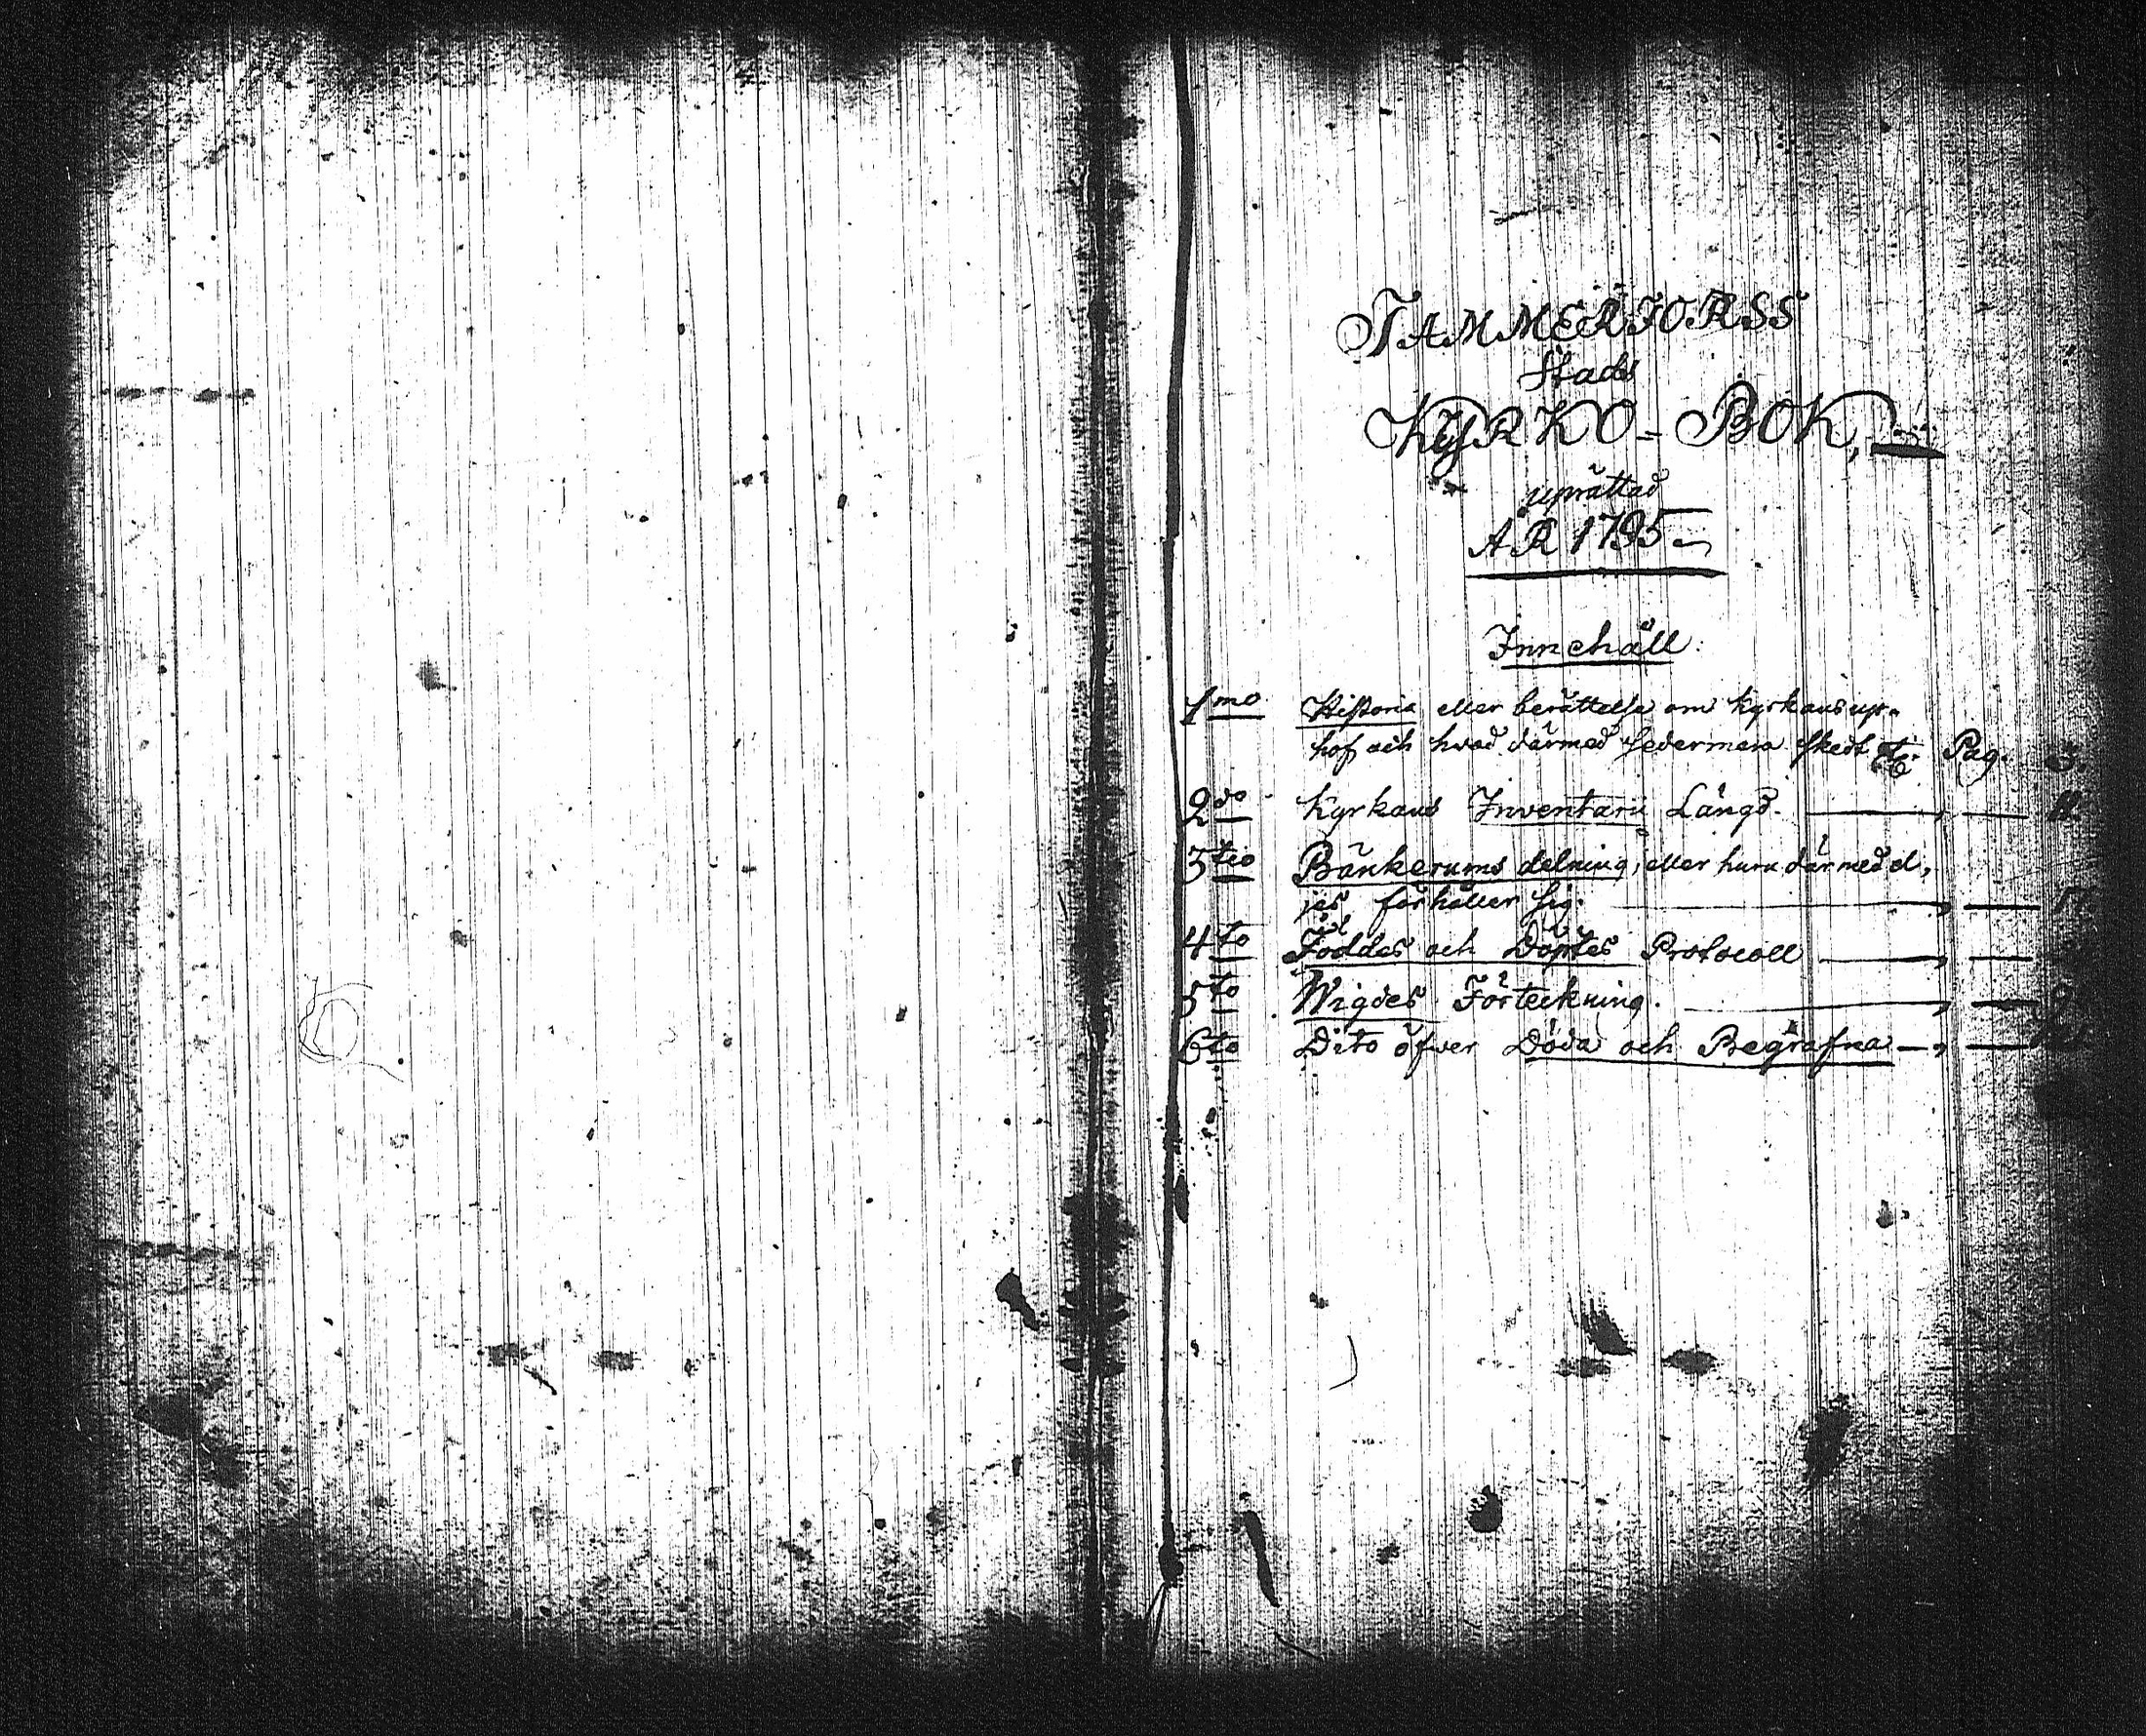 TAMMERFORSS
Stads
KYRKO=BOK,
uprättad
ÅR 1795
Innehåll:
1mo Historia eller berättelse om kyrkans up=
hof och hvad därmed sedermera skedt &c. Pag. 3.
2do Kyrkans Inventarii Längd.
3tio Bänkerums delning, eller huru därmed el,
jes förhåller sig.
4to Föddas och Döptes Protocoll
5to Wigdes Förteckning.
6to Dito öfver Döda och Begrafna